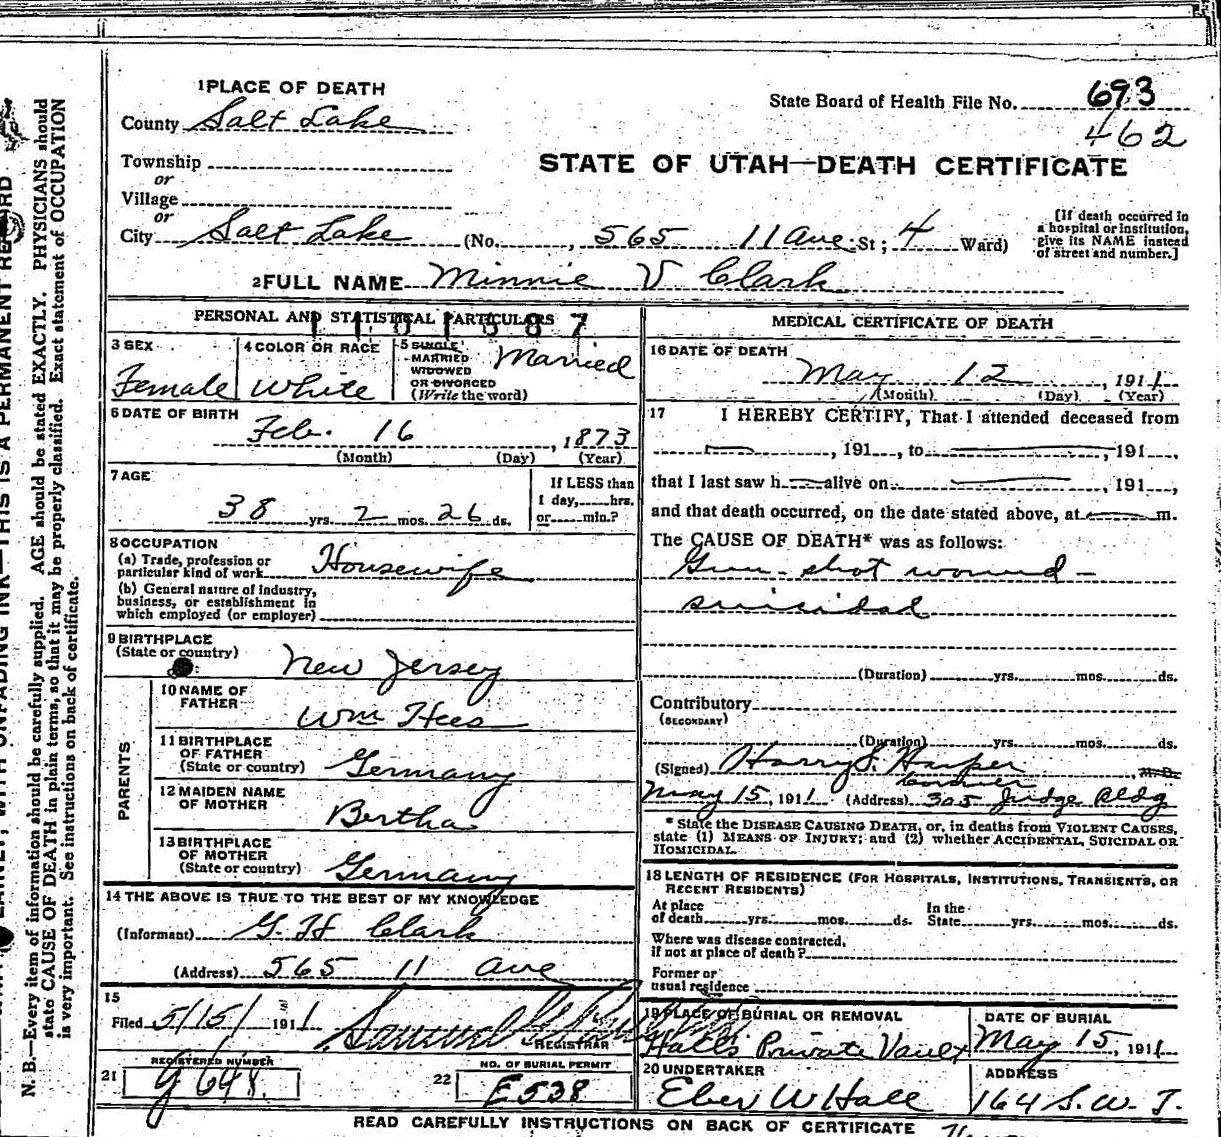 1 PLACE OF DEATH
County Salt Lake
Township
or
Village
or
City Salt Lake (No. , 565 11 Ave St; 4 Ward)
State Board of Health File No. 693
462
STATE OF UTAH—DEATH CERTIFICATE
[If death occurred in
a hospital or institution,
give its NAME instead
of street and number.]
2 FULL NAME Minnie V Clark
PERSONAL AND STATISTICAL PARTICULARS
3 SEX
Female
4 COLOR OR RACE
White
5 SINGLE
MARRIED
WIDOWED
OR DIVORCED
(Write the word)
Married
6 DATE OF BIRTH
Feb. 16, 1873
(Month) (Day) (Year)
7 AGE
38 yrs. 2 mos. 26 ds.
If LESS than
1 day, hrs.
or min.?
8 OCCUPATION
(a) Trade, profession or
particular kind of work Housewife
(b) General nature of industry,
business, or establishment in
which employed (or employer)
9 BIRTHPLACE
(State or country) New Jersey
PARENTS
10 NAME OF
FATHER Wm Hees
11 BIRTHPLACE
OF FATHER
(State or country) Germany
12 MAIDEN NAME
OF MOTHER Bertha
13 BIRTHPLACE
OF MOTHER
(State or country) Germany
14 THE ABOVE IS TRUE TO THE BEST OF MY KNOWLEDGE
(Informant) G. H Clark
(Address) 565 11 Ave
15
Filed 5/15/ 1911
REGISTRAR
REGISTERED NUMBER
21 g 648.
NO. OF BURIAL PERMIT
22 E538
MEDICAL CERTIFICATE OF DEATH
16 DATE OF DEATH
May 12, 1911
(Month) (Day) (Year)
17 I HEREBY CERTIFY, That I attended deceased from
, 191 , to , 191 ,
that I last saw h alive on , 191 ,
and that death occurred, on the date stated above, at m.
The CAUSE OF DEATH* was as follows:
Gun-shot wound -
suicidal
(Duration) yrs. mos. ds.
Contributory
(SECONDARY)
(Duration) yrs. mos. ds.
(Signed) Harry S. Harper, M.D.
Coroner
May 15, 1911 (Address) 305 Judge Bldg
* State the DISEASE CAUSING DEATH, or, in deaths from VIOLENT CAUSES,
state (1) MEANS OF INJURY; and (2) whether ACCIDENTAL, SUICIDAL OR
HOMICIDAL.
18 LENGTH OF RESIDENCE (FOR HOSPITALS, INSTITUTIONS, TRANSIENTS, OR
RECENT RESIDENTS)
At place
of death yrs. mos. ds.
In the
State yrs. mos. ds.
Where was disease contracted,
if not at place of death?
Former or
usual residence
19 PLACE OF BURIAL OR REMOVAL
Halls Private Vault
DATE OF BURIAL
May 15, 1911
20 UNDERTAKER
Eber W Hall
ADDRESS
164 S. W. T.
READ CAREFULLY INSTRUCTIONS ON BACK OF CERTIFICATE
N. B.—Every item of information should be carefully supplied. AGE should be stated EXACTLY. PHYSICIANS should
state CAUSE OF DEATH in plain terms, so that it may be properly classified. Exact statement of OCCUPATION
is very important. See instructions on back of certificate.